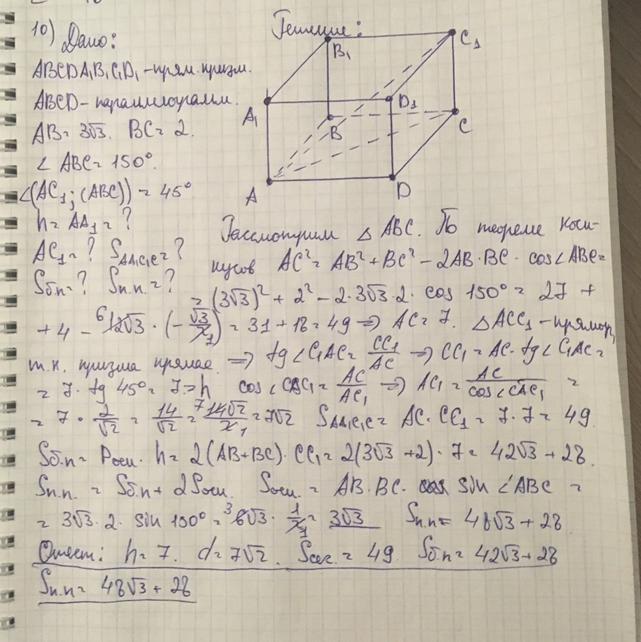 10) Дано:
Решение:
ABCDA₁B₁C₁D₁ - прям. призм.
ABCD - параллелограмм.
AB = 3√3. BC = 2.
∠ ABC = 150°.
∠(AC₁; (ABC)) = 45°
h = AA₁ = ?
AC₁ = ? SAA₁C₁C = ?
Sб.п = ? Sп.п. = ?
B₁
C₁
A₁
D₁
B
C
A
D
Рассмотрим △ ABC. По теореме коси-
нусов AC² = AB² + BC² - 2AB · BC · cos∠ABC =
= (3√3)² + 2² - 2·3√3·2· cos 150° = 27 +
+ 4 - ⁶12√3 · (- √3/2₁) = 31 + 18 = 49 ⇒ AC = 7. △ ACC₁ - прямоуг,
т.к. призма прямая ⇒ tg∠C₁AC = CC₁/AC ⇒ CC₁ = AC · tg∠C₁AC =
= 7 · tg 45° = 7 = h cos∠CAC₁ = AC/AC₁ ⇒ AC₁ = AC/cos∠CAC₁ =
= 7 · 2/√2 = 14/√2 = ⁷14√2/2₁ = 7√2 SAA₁C₁C = AC · CC₁ = 7 · 7 = 49.
Sб.п = Pосн. · h = 2(AB + BC) · CC₁ = 2(3√3 + 2) · 7 = 42√3 + 28.
Sп.п. = Sб.п + 2Sосн. Sосн. = AB · BC · sin ∠ABC =
= 3√3 · 2 · sin 150° = ³6√3 · 1/2₁ = 3√3 Sп.п = 48√3 + 28
Ответ: h = 7. d = 7√2. Sсеч. = 49 Sб.п = 42√3 + 28
Sп.п = 48√3 + 28